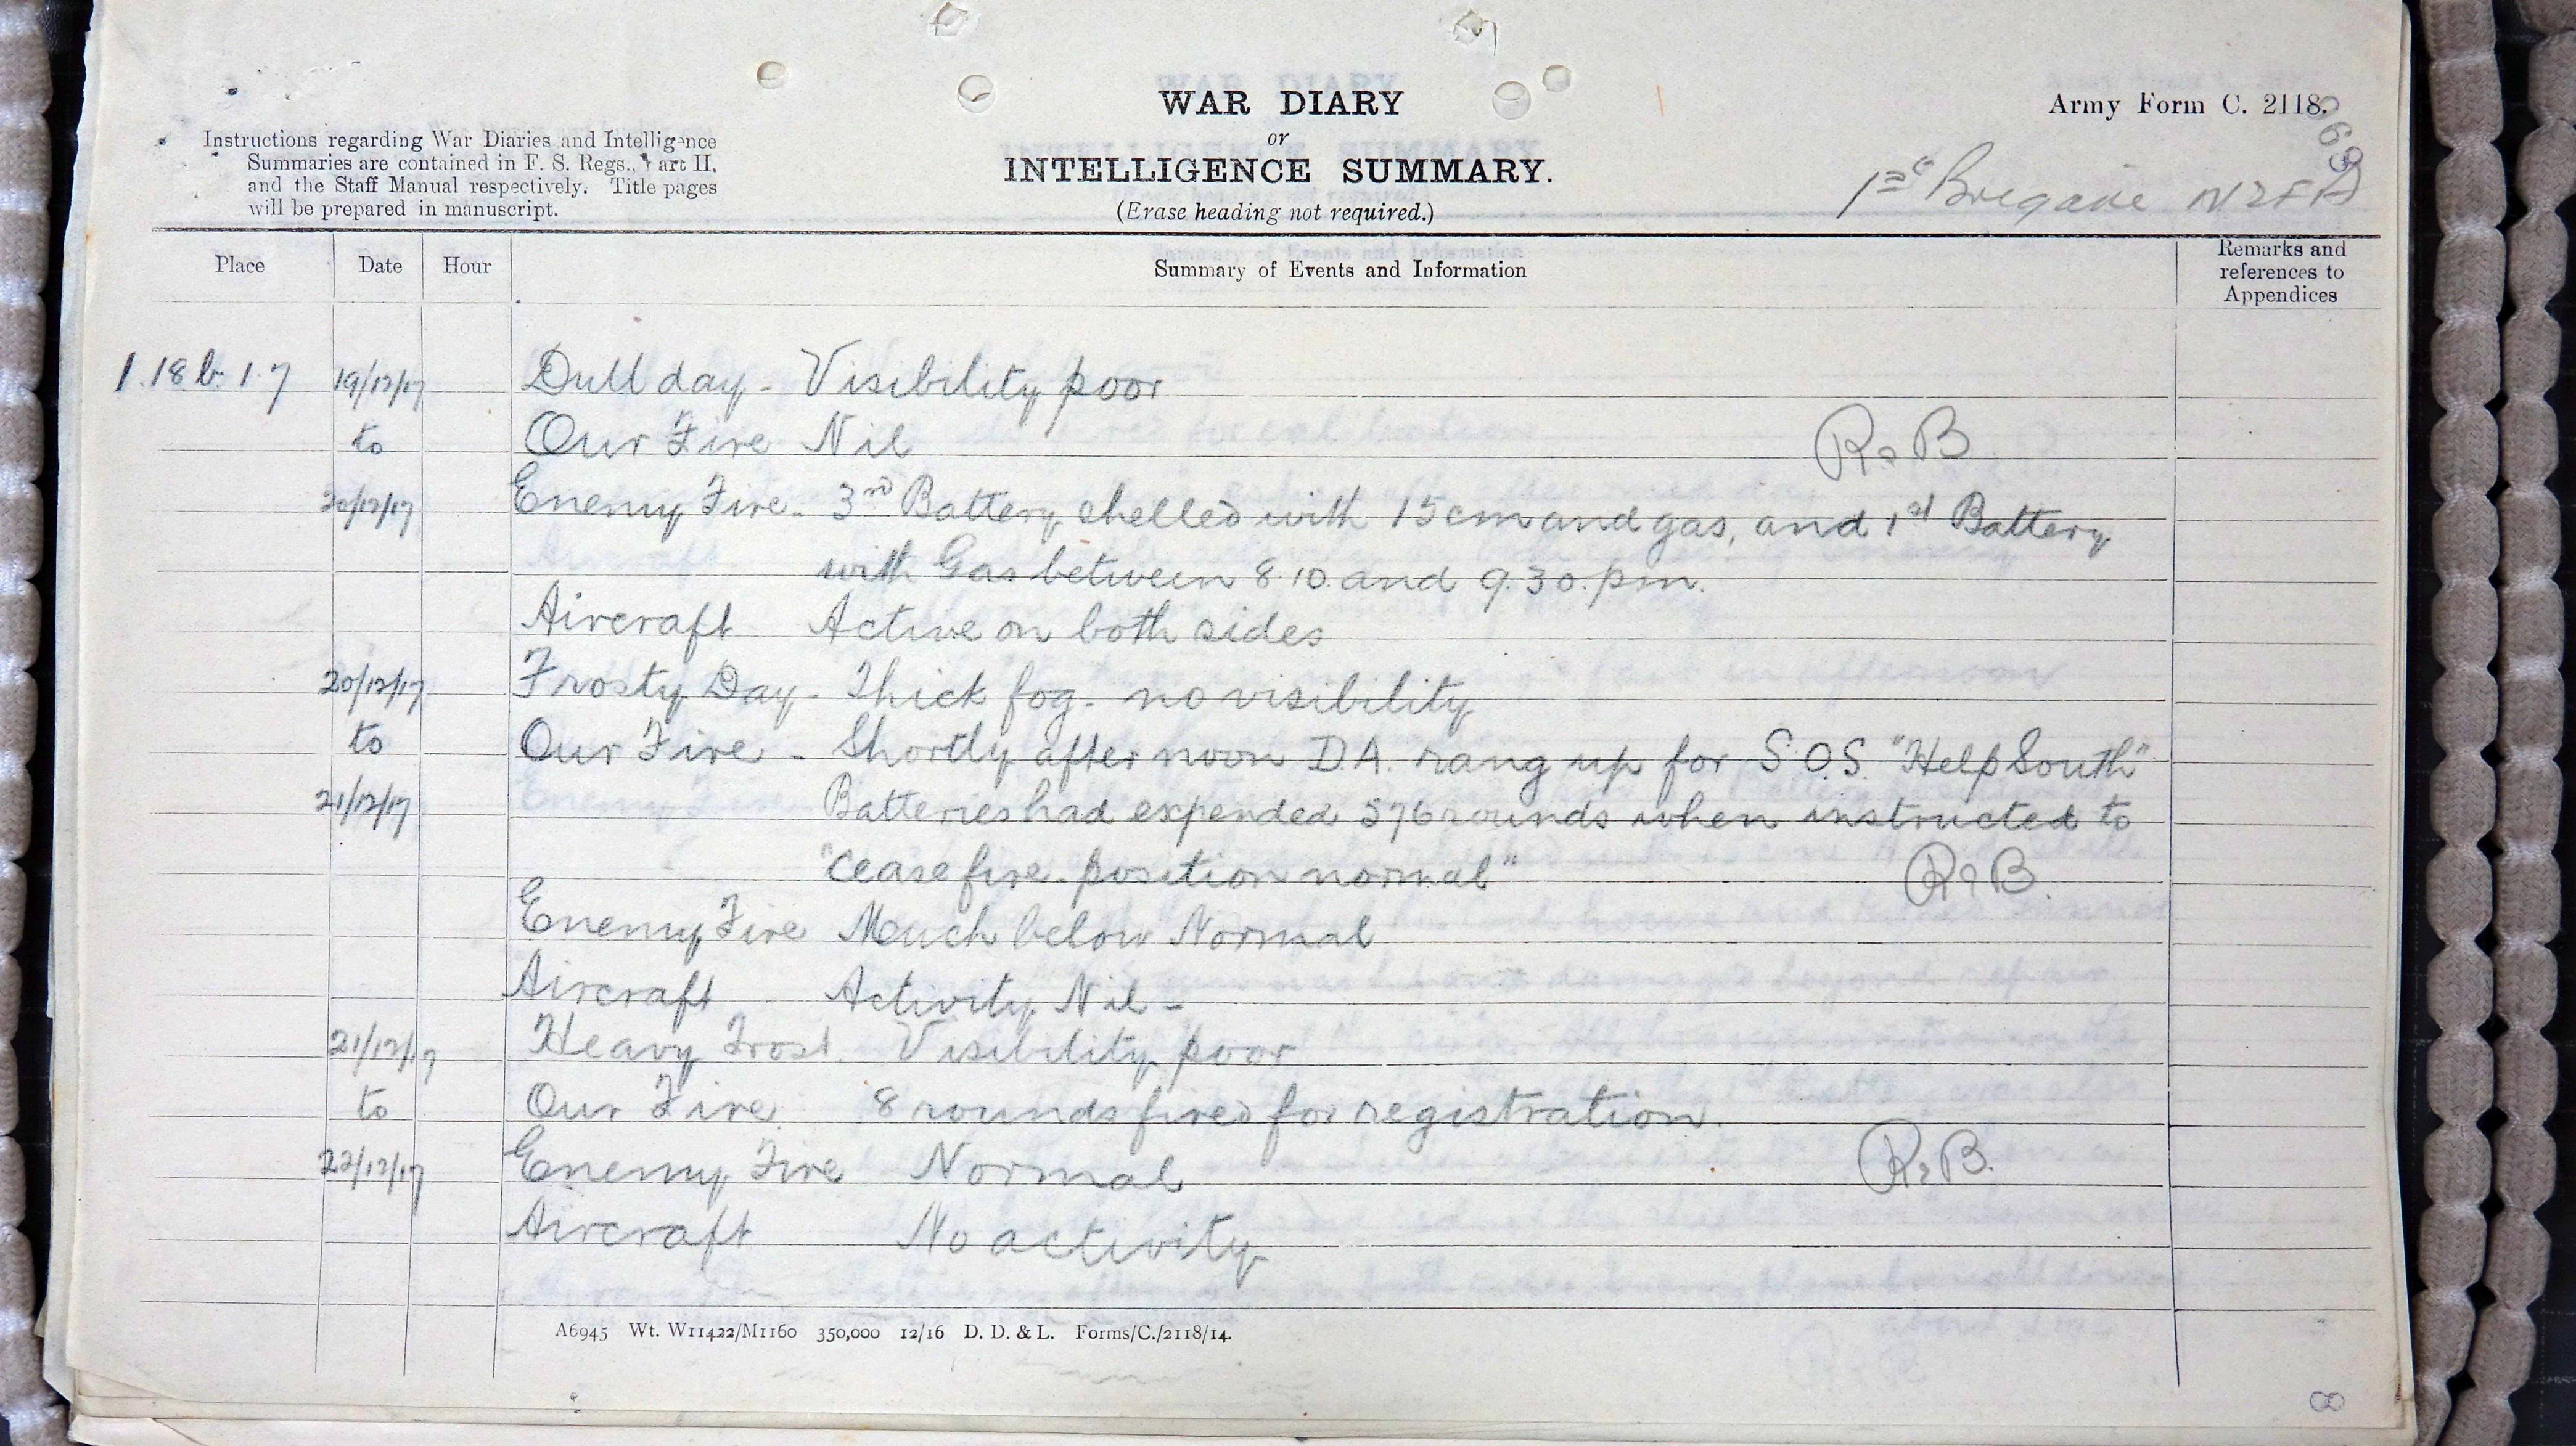 WAR DIARY
or
INTELLIGENCE SUMMARY.
(Erase heading not required.)
Army Form C. 2118.
Instructions regarding War Diaries and Intelligence
Summaries are contained in F. S. Regs., Part II,
and the Staff Manual respectively. Title pages
will be prepared in manuscript.
1st Brigade NZFA
Place Date Hour Summary of Events and Information Remarks and references to Appendices
1.18.b.1.7 19/12/17 Dull day - Visibility poor
to Our Fire Nil
20/12/17 Enemy Fire - 3rd Battery shelled with 15cm and gas, and 1st Battery
with Gas between 8.10. and 9.30. pm.
Aircraft Active on both sides
20/12/17 Frosty Day - Thick fog - no visibility
to Our Fire - Shortly after noon D.A. rang up for S.O.S. "Help South"
21/12/17 Batteries had expended 576 rounds when instructed to
"Cease fire - position normal"
Enemy Fire Much below Normal
Aircraft Activity Nil -
21/12/17 Heavy Frost. Visibility poor
to Our Fire 8 rounds fired for registration.
22/12/17 Enemy Fire Normal
Aircraft No activity
A6945 Wt. W11422/M1160 350,000 12/16 D. D. & L. Forms/C./2118/14.
8